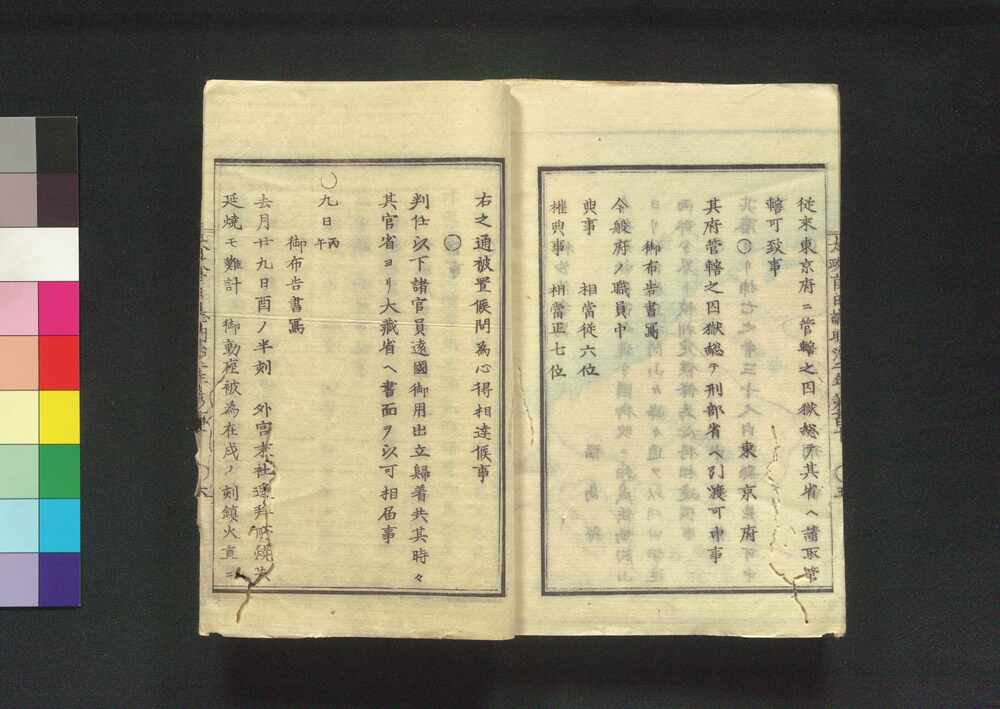 従来東京府ニ管轄之囚獄総而其省ヘ請取管
轄可致事
〇　東京府
其府管轄之囚獄総テ刑部省ヘ引渡可申事
御布告書写
今般府ノ職員中
典事　相當従六位
権典事　相當正七位
右之通被置候間為心得相達候事
〇
判任以下諸官員遠國御用出立歸着共其時々
其官省ヨリ大蔵省ヘ書面ヲ以可相届事
〇九日丙午
御布告書寫
去月廿九日酉ノ半刻　外宮末社遥拝所
延焼モ難計　御動座被為在戌ノ刻鎮火直ニ